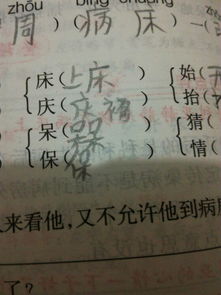 zhōu bìng chuáng
周）（病床）一（
床（上床）｛始（
庆（庆福）｛抬（
呆（ ）｛猜（
保（保 ）｛情（
人来看他，又不允许他到病
了？